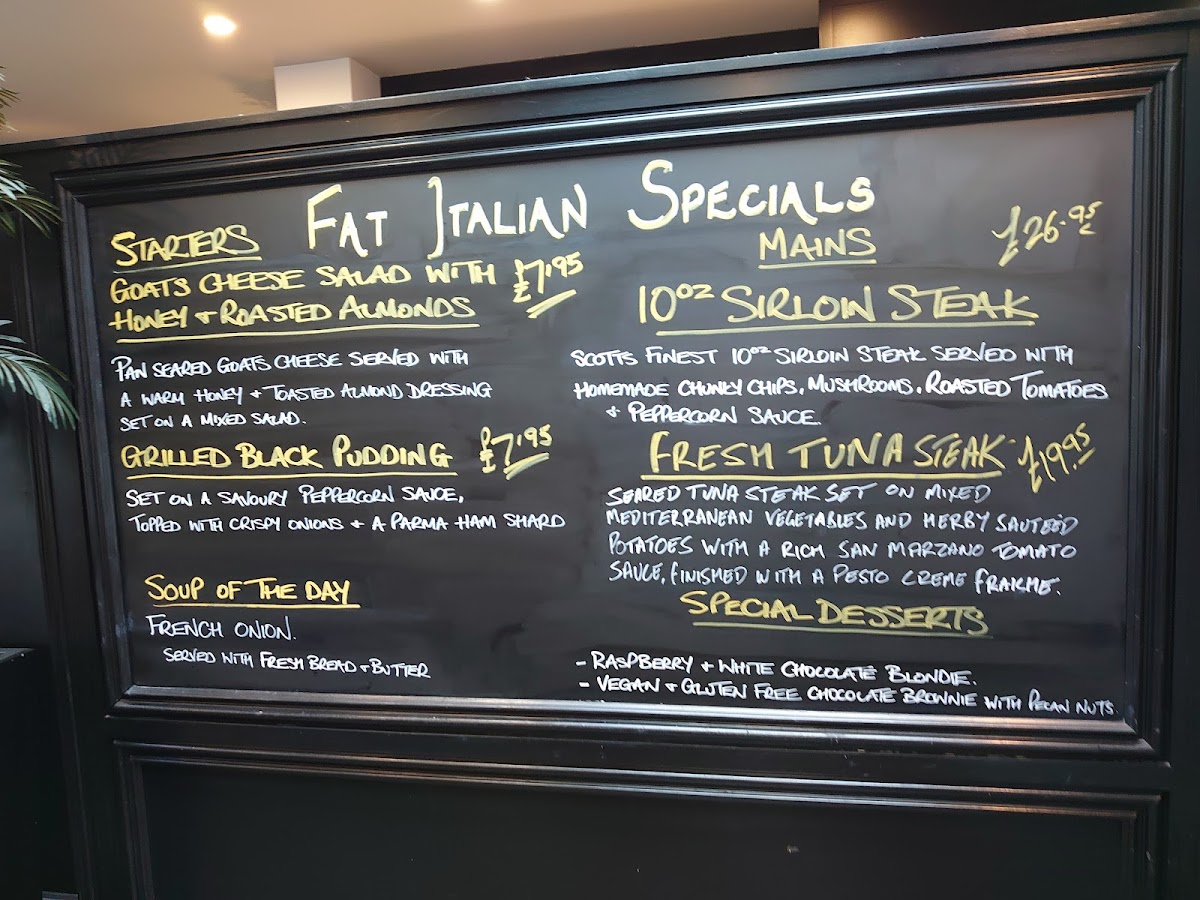 FAT ITALIAN SPECIALS
STARTERS
GOATS CHEESE SALAD WITH £7.95
HONEY + ROASTED ALMONDS
PAN SEARED GOATS CHEESE SERVED WITH
A WARM HONEY + TOASTED ALMOND DRESSING
SET ON A MIXED SALAD.
GRILLED BLACK PUDDING £7.95
SET ON A SAVOURY PEPPERCORN SAUCE,
TOPPED WITH CRISPY ONIONS + A PARMA HAM SHARD
SOUP OF THE DAY
FRENCH ONION.
SERVED WITH FRESH BREAD + BUTTER
MAINS
£26.95
10oz SIRLOIN STEAK
SCOTTS FINEST 10oz SIRLOIN STEAK SERVED WITH
HOMEMADE CHUNKY CHIPS, MUSHROOMS, ROASTED TOMATOES
+ PEPPERCORN SAUCE.
FRESH TUNA STEAK £19.95
SEARED TUNA STEAK SET ON MIXED
MEDITERRANEAN VEGETABLES AND HERBY SAUTEÉD
POTATOES WITH A RICH SAN MARZANO TOMATO
SAUCE, FINISHED WITH A PESTO CREME FRAICHE.
SPECIAL DESSERTS
- RASPBERRY + WHITE CHOCOLATE BLONDIE.
- VEGAN + GLUTEN FREE CHOCOLATE BROWNIE WITH PECAN NUTS